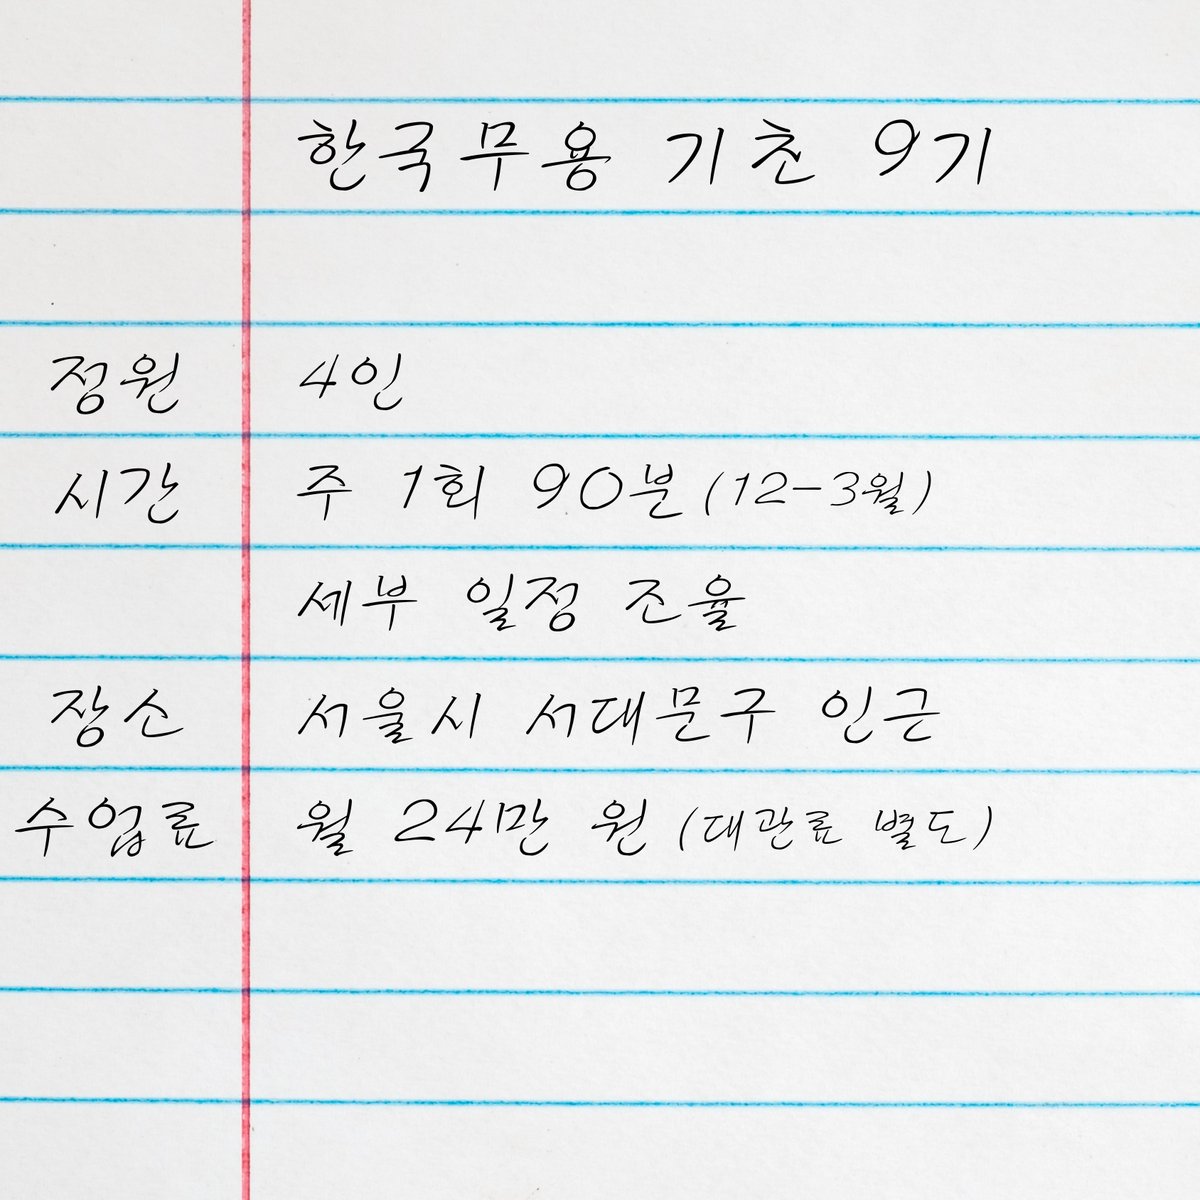 한국무용 기초 9기
정원 4인
시간 주 1회 90분 (12-3월)
세부 일정 조율
장소 서울시 서대문구 인근
수업료 월 24만 원 (대관료 별도)